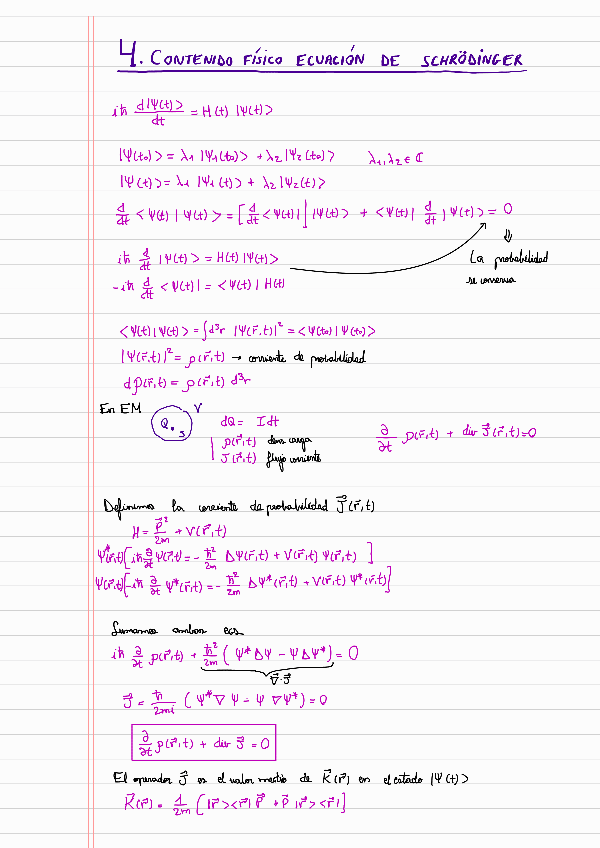 4. CONTENIDO FÍSICO ECUACIÓN DE SCHRÖDINGER
iħ d|Ψ(t)>/dt = H(t) |Ψ(t)>
|Ψ(t₀)> = λ₁ |Ψ₁(t₀)> + λ₂ |Ψ₂(t₀)> λ₁, λ₂ ∈ ℂ
|Ψ(t)> = λ₁ |Ψ₁(t)> + λ₂ |Ψ₂(t)>
d/dt <Ψ(t) | Ψ(t)> = [d/dt <Ψ(t)|] |Ψ(t)> + <Ψ(t)| d/dt |Ψ(t)> = 0
⇓
iħ d/dt |Ψ(t)> = H(t) |Ψ(t)>
La probabilidad
se conserva
-iħ d/dt <Ψ(t)| = <Ψ(t)| H(t)
<Ψ(t)|Ψ(t)> = ∫d³r |Ψ(r⃗,t)|² = <Ψ(t₀)|Ψ(t₀)>
|Ψ(r⃗,t)|² = ρ(r⃗,t) → corriente de probabilidad
dP(r⃗,t) = ρ(r⃗,t) d³r
En EM
Q. S V
dQ = I dt
ρ(r⃗,t) dens carga
J(r⃗,t) flujo corriente
∂/∂t ρ(r⃗,t) + div J⃗(r⃗,t) = 0
Definimos la corriente de probabilidad J⃗(r⃗,t)
H = P⃗²/2m + V(r⃗,t)
Ψ*(r⃗,t)[iħ ∂/∂t Ψ(r⃗,t) = - ħ²/2m ΔΨ(r⃗,t) + V(r⃗,t) Ψ(r⃗,t)]
Ψ(r⃗,t)[-iħ ∂/∂t Ψ*(r⃗,t) = - ħ²/2m ΔΨ*(r⃗,t) + V(r⃗,t) Ψ*(r⃗,t)]
Sumamos ambas ecs
iħ ∂/∂t ρ(r⃗,t) + ħ²/2m (Ψ* ΔΨ - Ψ ΔΨ*) = 0
∇⃗·J⃗
J⃗ = ħ/2mi (Ψ* ∇Ψ - Ψ ∇Ψ*) = 0
∂/∂t ρ(r⃗,t) + div J⃗ = 0
El operador J⃗ es el valor medio de K⃗(r⃗) en el estado |Ψ(t)>
K⃗(r⃗) = 1/2m [|r⃗><r⃗| P⃗ + P⃗ |r⃗><r⃗|]